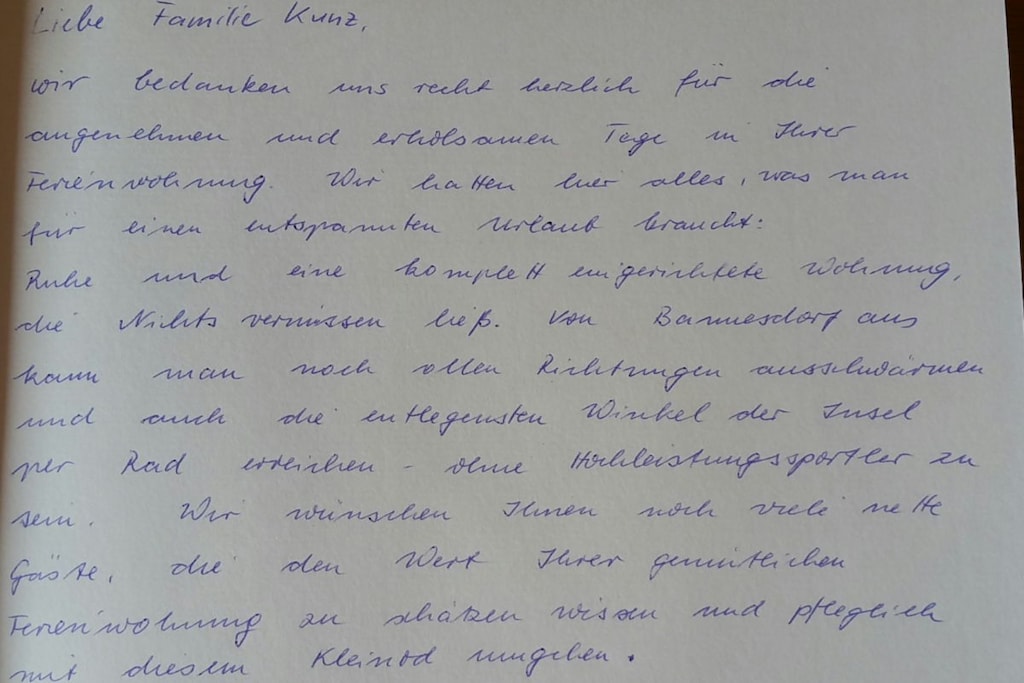 Liebe Familie Kunz,
wir bedanken uns recht herzlich für die
angenehmen und erholsamen Tage in Ihrer
Ferienwohnung. Wir hatten hier alles, was man
für einen entspannten Urlaub braucht:
Ruhe und eine komplett eingerichtete Wohnung,
die Nichts vermissen ließ. Von Bannesdorf aus
kann man nach allen Richtungen ausschwärmen
und auch die entlegensten Winkel der Insel
per Rad erreichen - ohne Hochleistungssportler zu
sein. Wir wünschen Ihnen noch viele nette
Gäste, die den Wert Ihrer gemütlichen
Ferienwohnung zu schätzen wissen und pfleglich
mit diesem Kleinod umgehen.